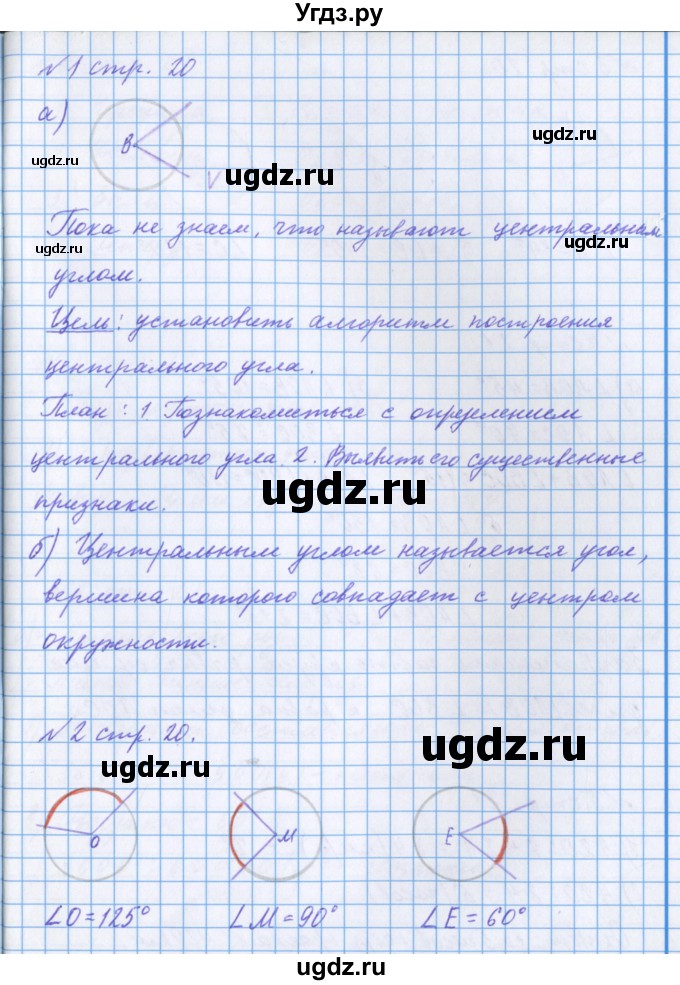 Угдз.ру
№1 стр. 20
а)
В
V
Пока не знаем, что называют центральным
углом.
Цель: установить алгоритм построения
центрального угла.
План: 1 Познакомиться с определением
центрального угла. 2. Выявить его существенные
признаки.
б) Центральным углом называется угол,
вершина которого совпадает с центром
окружности.
№2 стр. 20.
О М Е
∠О=125° ∠М=90° ∠Е=60°
ugdz.ru
ugdz.ru
ugdz.ru
ugdz.ru
ugdz.ru
ugdz.ru
ugdz.ru
ugdz.ru
ugdz.ru